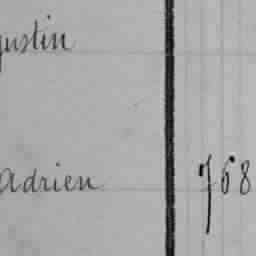 gustin
Adrien 768